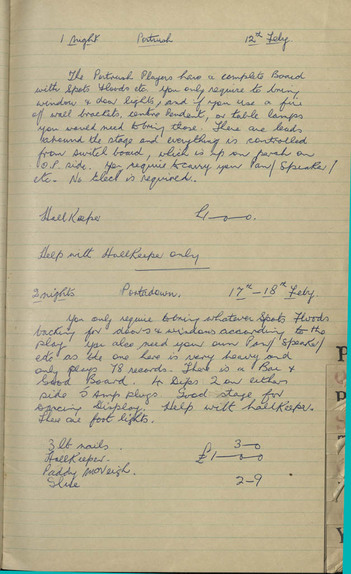 1 night Portrush 12th Feby
The Portrush Players have a complete Board
with Spots & Floods etc. You only require to bring
window & door lights, and if you use a fire
or wall brackets, centre Pendant, or table lamps
you would need to bring those. There are leads
around the stage and everything is controlled
from switch board, which is up on perch on
O.P. side. You require to carry your Pan/Speaker/
etc. No Elect is required.
Hall Keeper £1-0-0.
Help with Hallkeeper only
2 nights Portadown. 17th-18th Feby
You only require to bring whatever Spots Floods
backing for doors & windows according to the
play. You also need your own Pan/Speaker/
etc as the one here is very heavy and
only plays 78 records. There is a Bar &
Good Board. 4 dips 2 on either
side 5 Amp plugs. Good stage for
Display. Help with hallkeeper.
There are foot lights.
3 lb nails. 3-0
Hallkeeper. £1-0-0
Paddy McVeigh.
Glue 2-9
P
P
S
7
Y